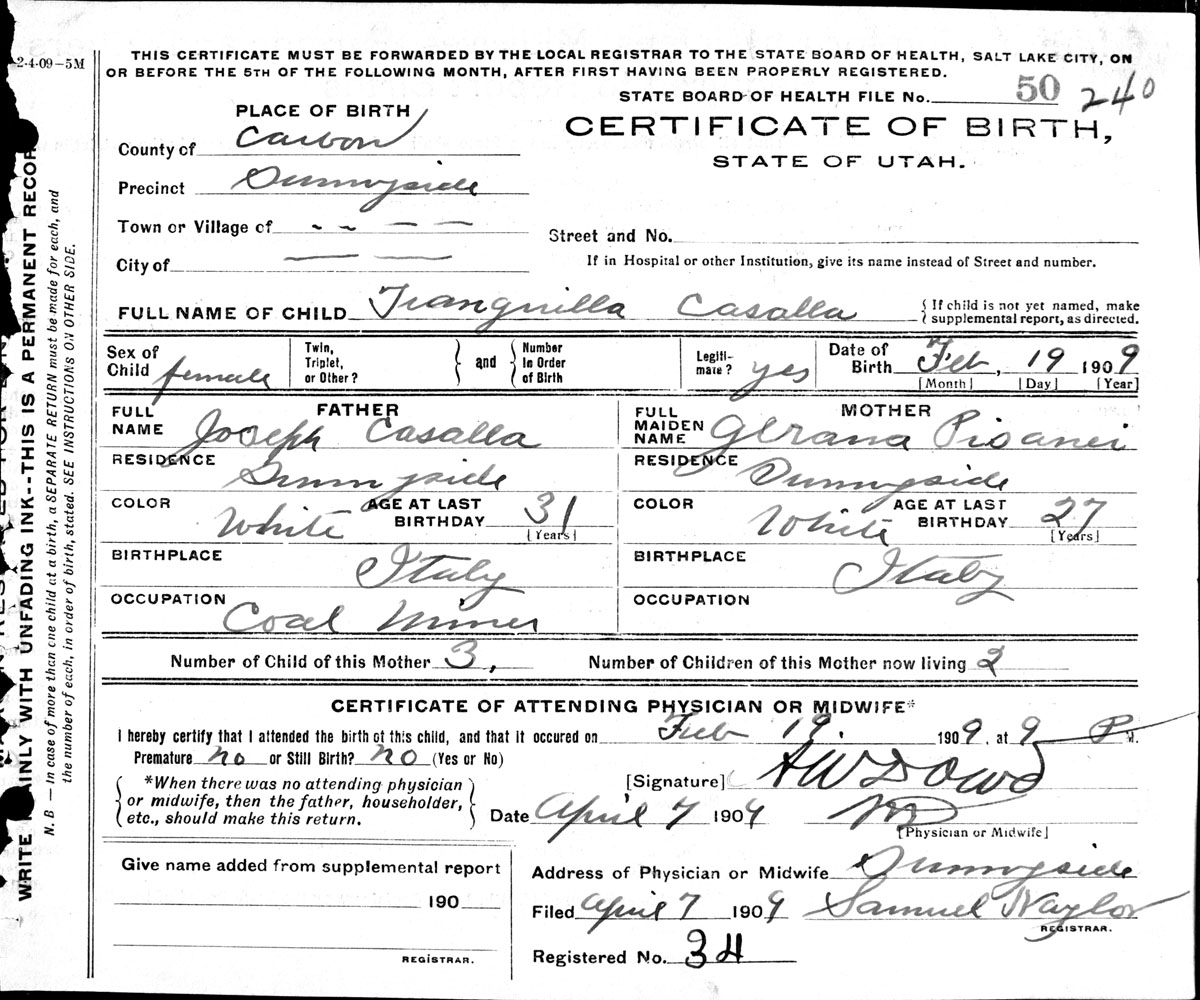 2-4-09-5M
THIS CERTIFICATE MUST BE FORWARDED BY THE LOCAL REGISTRAR TO THE STATE BOARD OF HEALTH, SALT LAKE CITY, ON
OR BEFORE THE 5TH OF THE FOLLOWING MONTH, AFTER FIRST HAVING BEEN PROPERLY REGISTERED.
STATE BOARD OF HEALTH FILE No. 50 240
PLACE OF BIRTH
CERTIFICATE OF BIRTH,
STATE OF UTAH.
County of Carbon
Precinct Sunnyside
Town or Village of - - - -
Street and No.
City of — —
If in Hospital or other Institution, give its name instead of Street and number.
FULL NAME OF CHILD Tranquilla Casalla { If child is not yet named, make supplemental report, as directed.
Sex of Child female Twin, Triplet, or Other? } and { Number in Order of Birth Legiti-mate? yes Date of Birth Feb, 19 1909
[Month] [Day] [Year]
FATHER
FULL NAME Joseph Casalla
RESIDENCE Sunnyside
COLOR White AGE AT LAST BIRTHDAY 31 [Years]
BIRTHPLACE Italy
OCCUPATION Coal Miner
MOTHER
FULL MAIDEN NAME
RESIDENCE Sunnyside
COLOR White AGE AT LAST BIRTHDAY 27 [Years]
BIRTHPLACE Italy
OCCUPATION
Number of Child of this Mother 3, Number of Children of this Mother now living 2
CERTIFICATE OF ATTENDING PHYSICIAN OR MIDWIFE*
I hereby certify that I attended the birth of this child, and that it occured on Feb 19. 1909, at 9 P. M.
Premature no or Still Birth? no (Yes or No)
[Signature] A W Dowd
*When there was no attending physician
or midwife, then the father, householder,
etc., should make this return.
Date April 7 1909 MD
[Physician or Midwife]
Give name added from supplemental report
190
REGISTRAR.
Address of Physician or Midwife Sunnyside
Filed April 7 1909 Samuel Naylor
REGISTRAR.
Registered No. 34
WRITE AINLY WITH UNFADING INK--THIS IS A PERMANENT RECOR
N. B — In case of more than one child at a birth, a SEPARATE RETURN must be made for each, and
the number of each, in order of birth, stated. SEE INSTRUCTIONS ON OTHER SIDE.